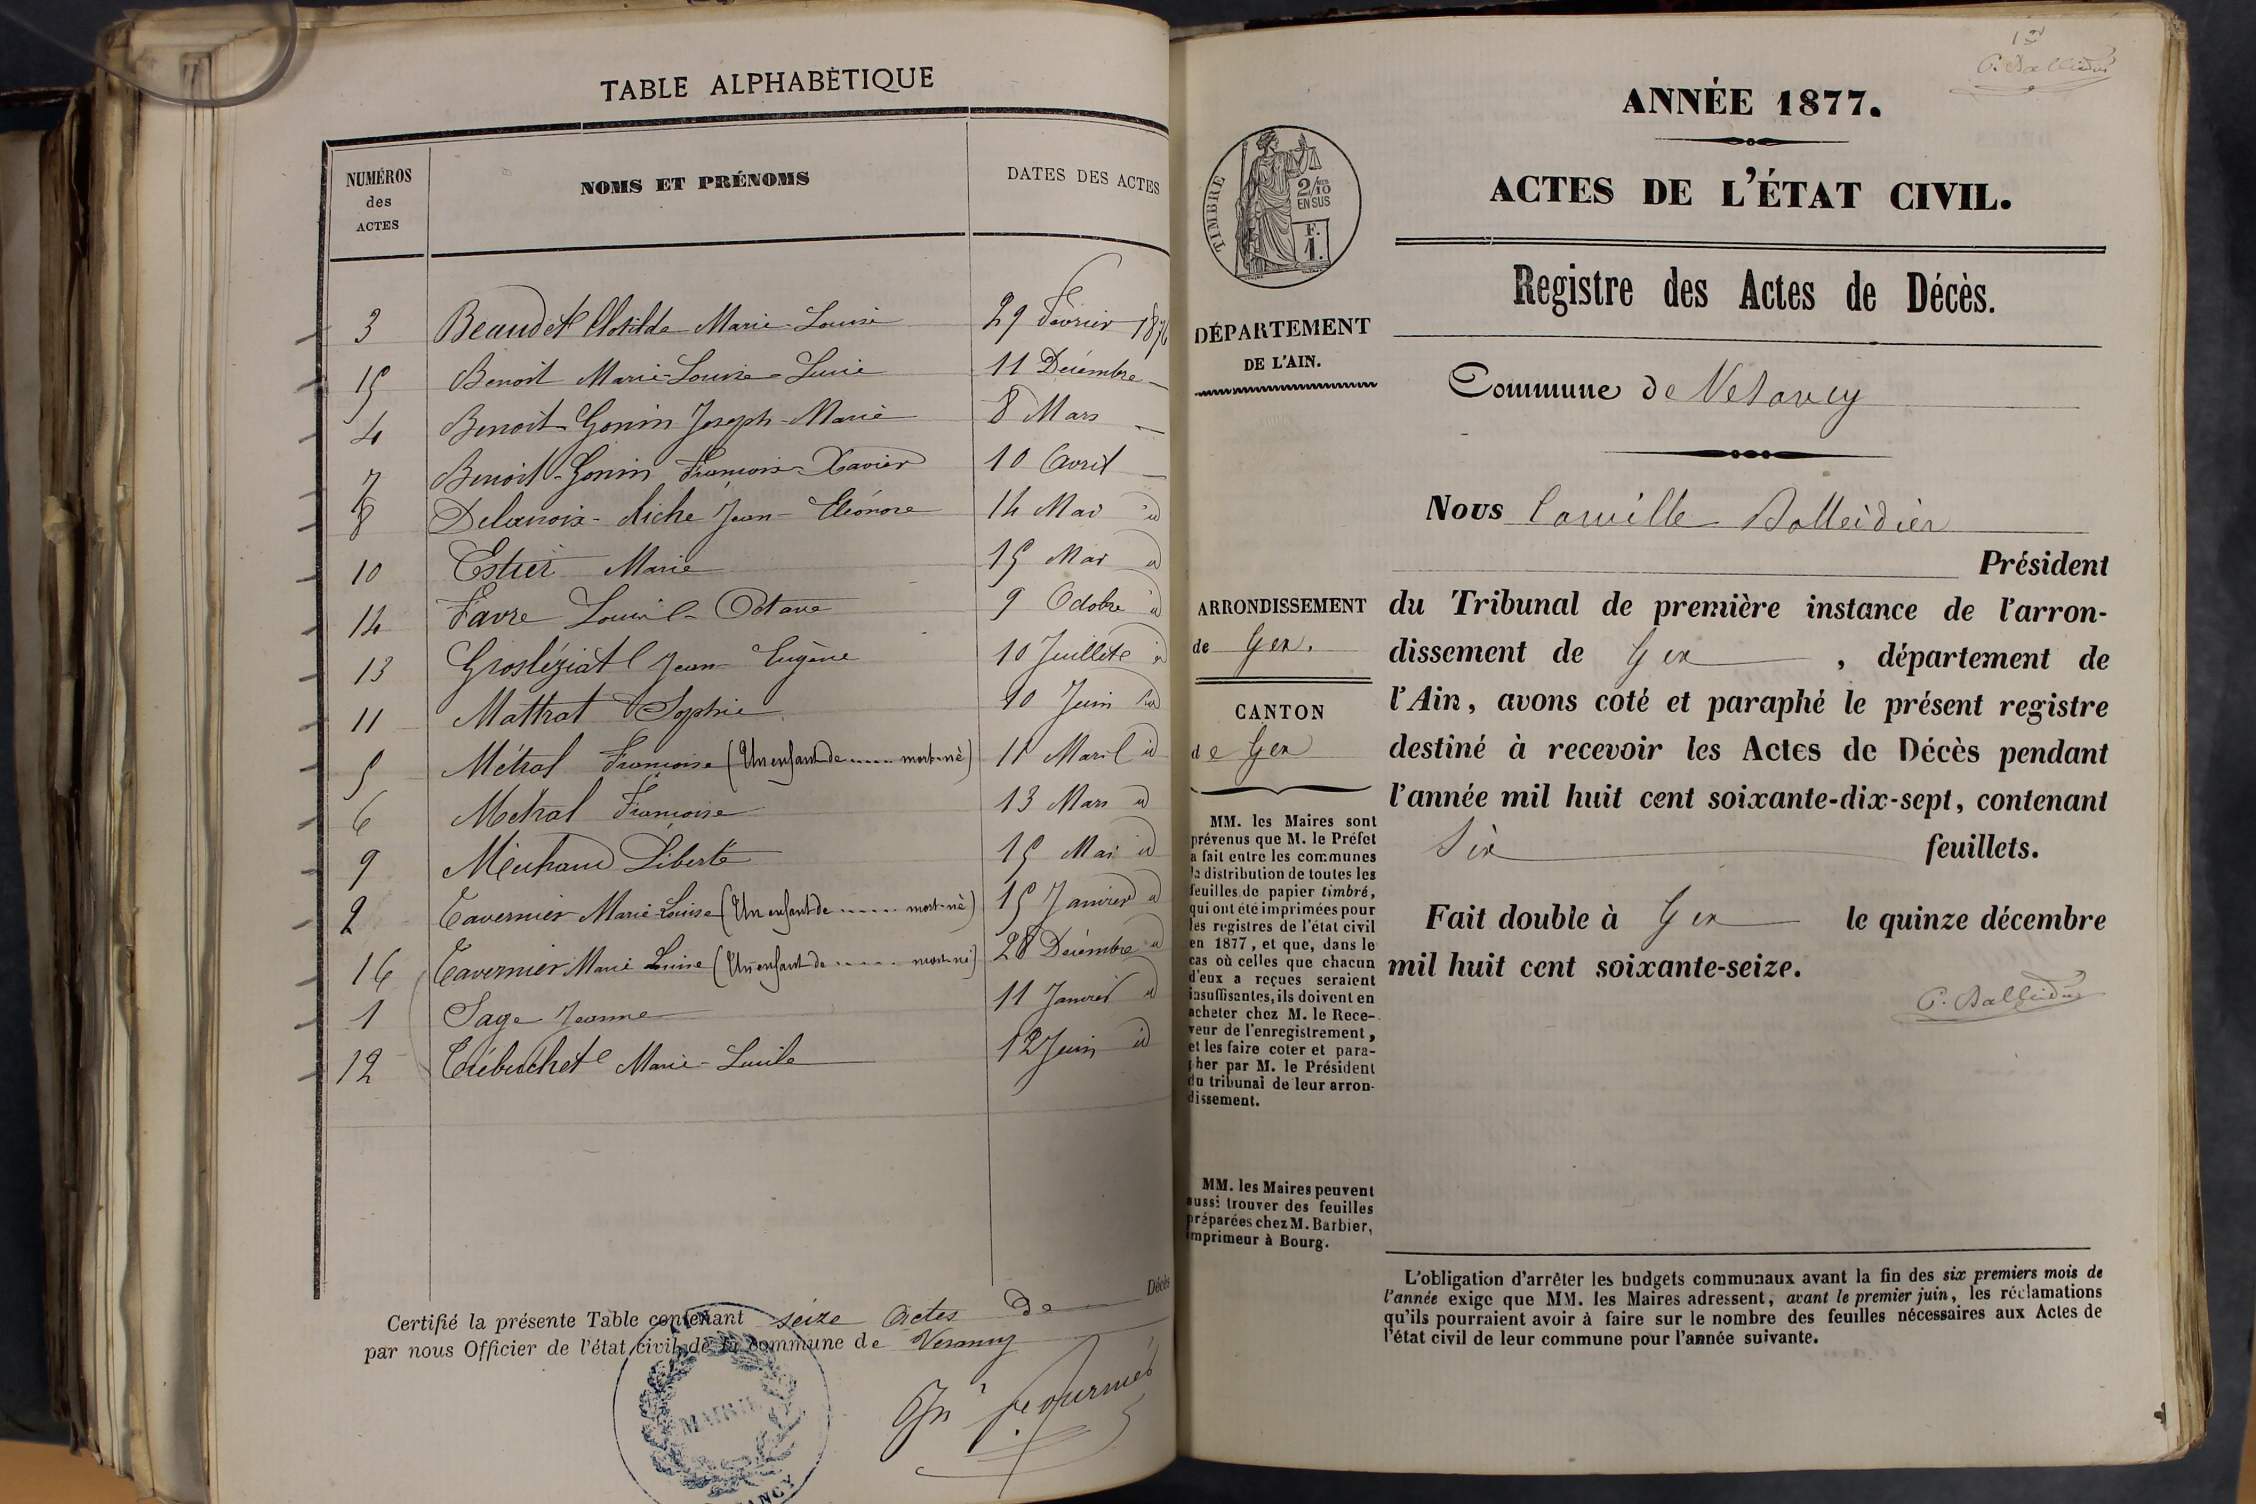 TABLE ALPHABÉTIQUE
NUMÉROS des ACTES
NOMS ET PRÉNOMS
DATES DES ACTES
3 Beaudet Clotilde Marie-Louise 29 Février 1876
15 Benoit Marie-Louise-Lucie 11 Décembre —
4 Benoit-Gonin Joseph-Marie 8 Mars —
7 Benoit-Gonin François-Xavier 10 Avril —
8 Delanoix-Miche Jean-Eléonore 14 Mai id
10 Estier Marie 15 Mai id
14 Favre Octave 9 Octobre id
13 Grosléziat Jean-Eugène 10 Juillet id
11 Mattrat Sophie 10 Juin id
5 Métral Françoise (Un enfant de ..... mort-né) 11 id
6 Metral Françoise 13 Mars id
9 Liberte 15 Mai id
2 Tavernier Marie-Louise (Un enfant de ..... mort-né) 15 Janvier id
16 Tavernier Marie Louise (Un enfant de ..... mort-né) 28 Décembre id
1 Sage Jeanne 11 Janvier id
12 Trébuchet Marie- 12 Juin id
Certifié la présente Table contenant seize actes de Décès
par nous Officier de l'état civil de la commune de Vesancy
MAIRIE
ANCY
1er
C. Balleidier
ANNÉE 1877.
ACTES DE L'ÉTAT CIVIL.
Registre des Actes de Décès.
TIMBRE
2/10
EN SUS
F.
1.
DÉPARTEMENT
DE L'AIN.
Commune de Vesancy
Nous Camille Balleidier
Président
du Tribunal de première instance de l'arron-
dissement de Gex, département de
l'Ain, avons coté et paraphé le présent registre
destiné à recevoir les Actes de Décès pendant
l'année mil huit cent soixante-dix-sept, contenant
Six feuillets.
Fait double à Gex le quinze décembre
mil huit cent soixante-seize.
C. Balleidier
ARRONDISSEMENT
de Gex.
CANTON
de Gex
MM. les Maires sont
prévenus que M. le Préfet
a fait entre les communes
la distribution de toutes les
feuilles de papier timbré,
qui ont été imprimées pour
les registres de l'état civil
en 1877, et que, dans le
cas où celles que chacun
d'eux a reçues seraient
insuffisantes, ils doivent en
acheter chez M. le Rece-
veur de l'enregistrement,
et les faire coter et para-
pher par M. le Président
du tribunal de leur arron-
dissement.
MM. les Maires peuvent
aussi trouver des feuilles
préparées chez M. Barbier,
imprimeur à Bourg.
L'obligation d'arrêter les budgets communaux avant la fin des six premiers mois de
l'année exige que MM. les Maires adressent, avant le premier juin, les réclamations
qu'ils pourraient avoir à faire sur le nombre des feuilles nécessaires aux Actes de
l'état civil de leur commune pour l'année suivante.